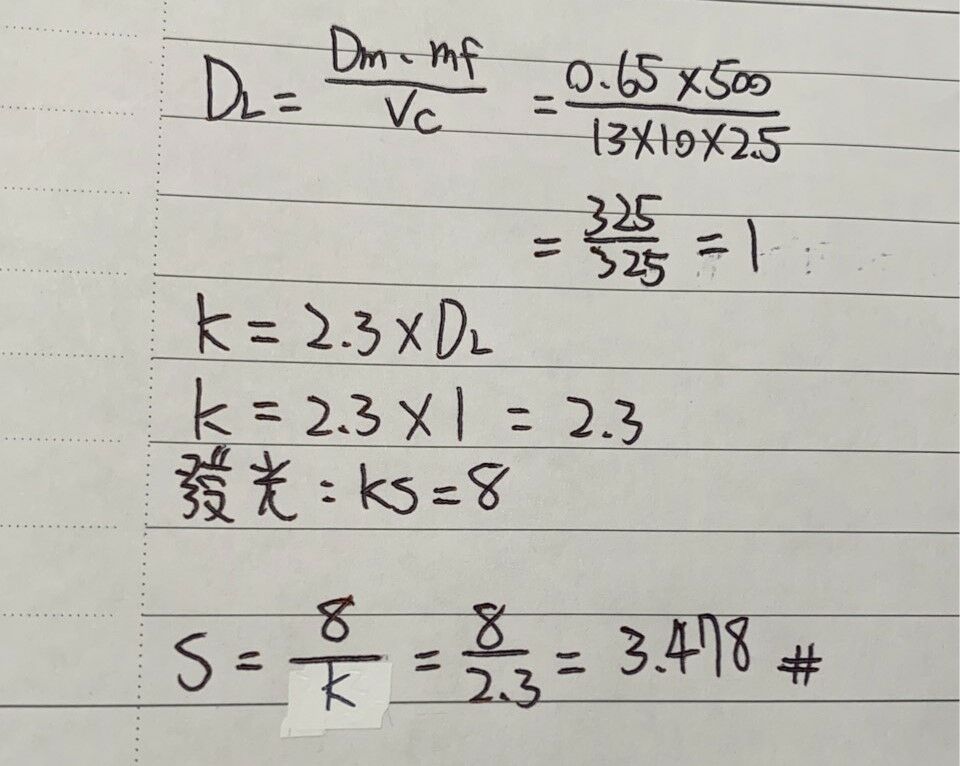 DL = Dm · mf / Vc = 0.65 × 500 / 13×10×2.5
= 325 / 325 = 1
k = 2.3 × DL
k = 2.3 × 1 = 2.3
發光 : ks = 8
S = 8 / k = 8 / 2.3 = 3.478 #